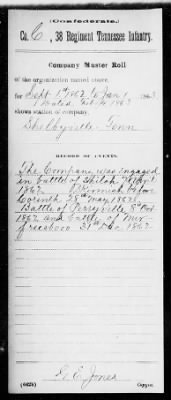 (Confederate.)
Co. C, 38 Regiment Tennessee Infantry.
Company Muster Roll
of the organization named above,
for Sept 1st 1862 to Jan 1, 1863
Dated Feb 1863
shows station of company,
Shelbyville Tenn
RECORD OF EVENTS.
The Company was engaged
in battle of Shiloh
1862. before
Corinth 28th May 1862.
Battle of Perryville 8th Oct
1862 and battle of Mur-
freesboro 31st Dec 1862.
G E Jones
(635) Copyist.